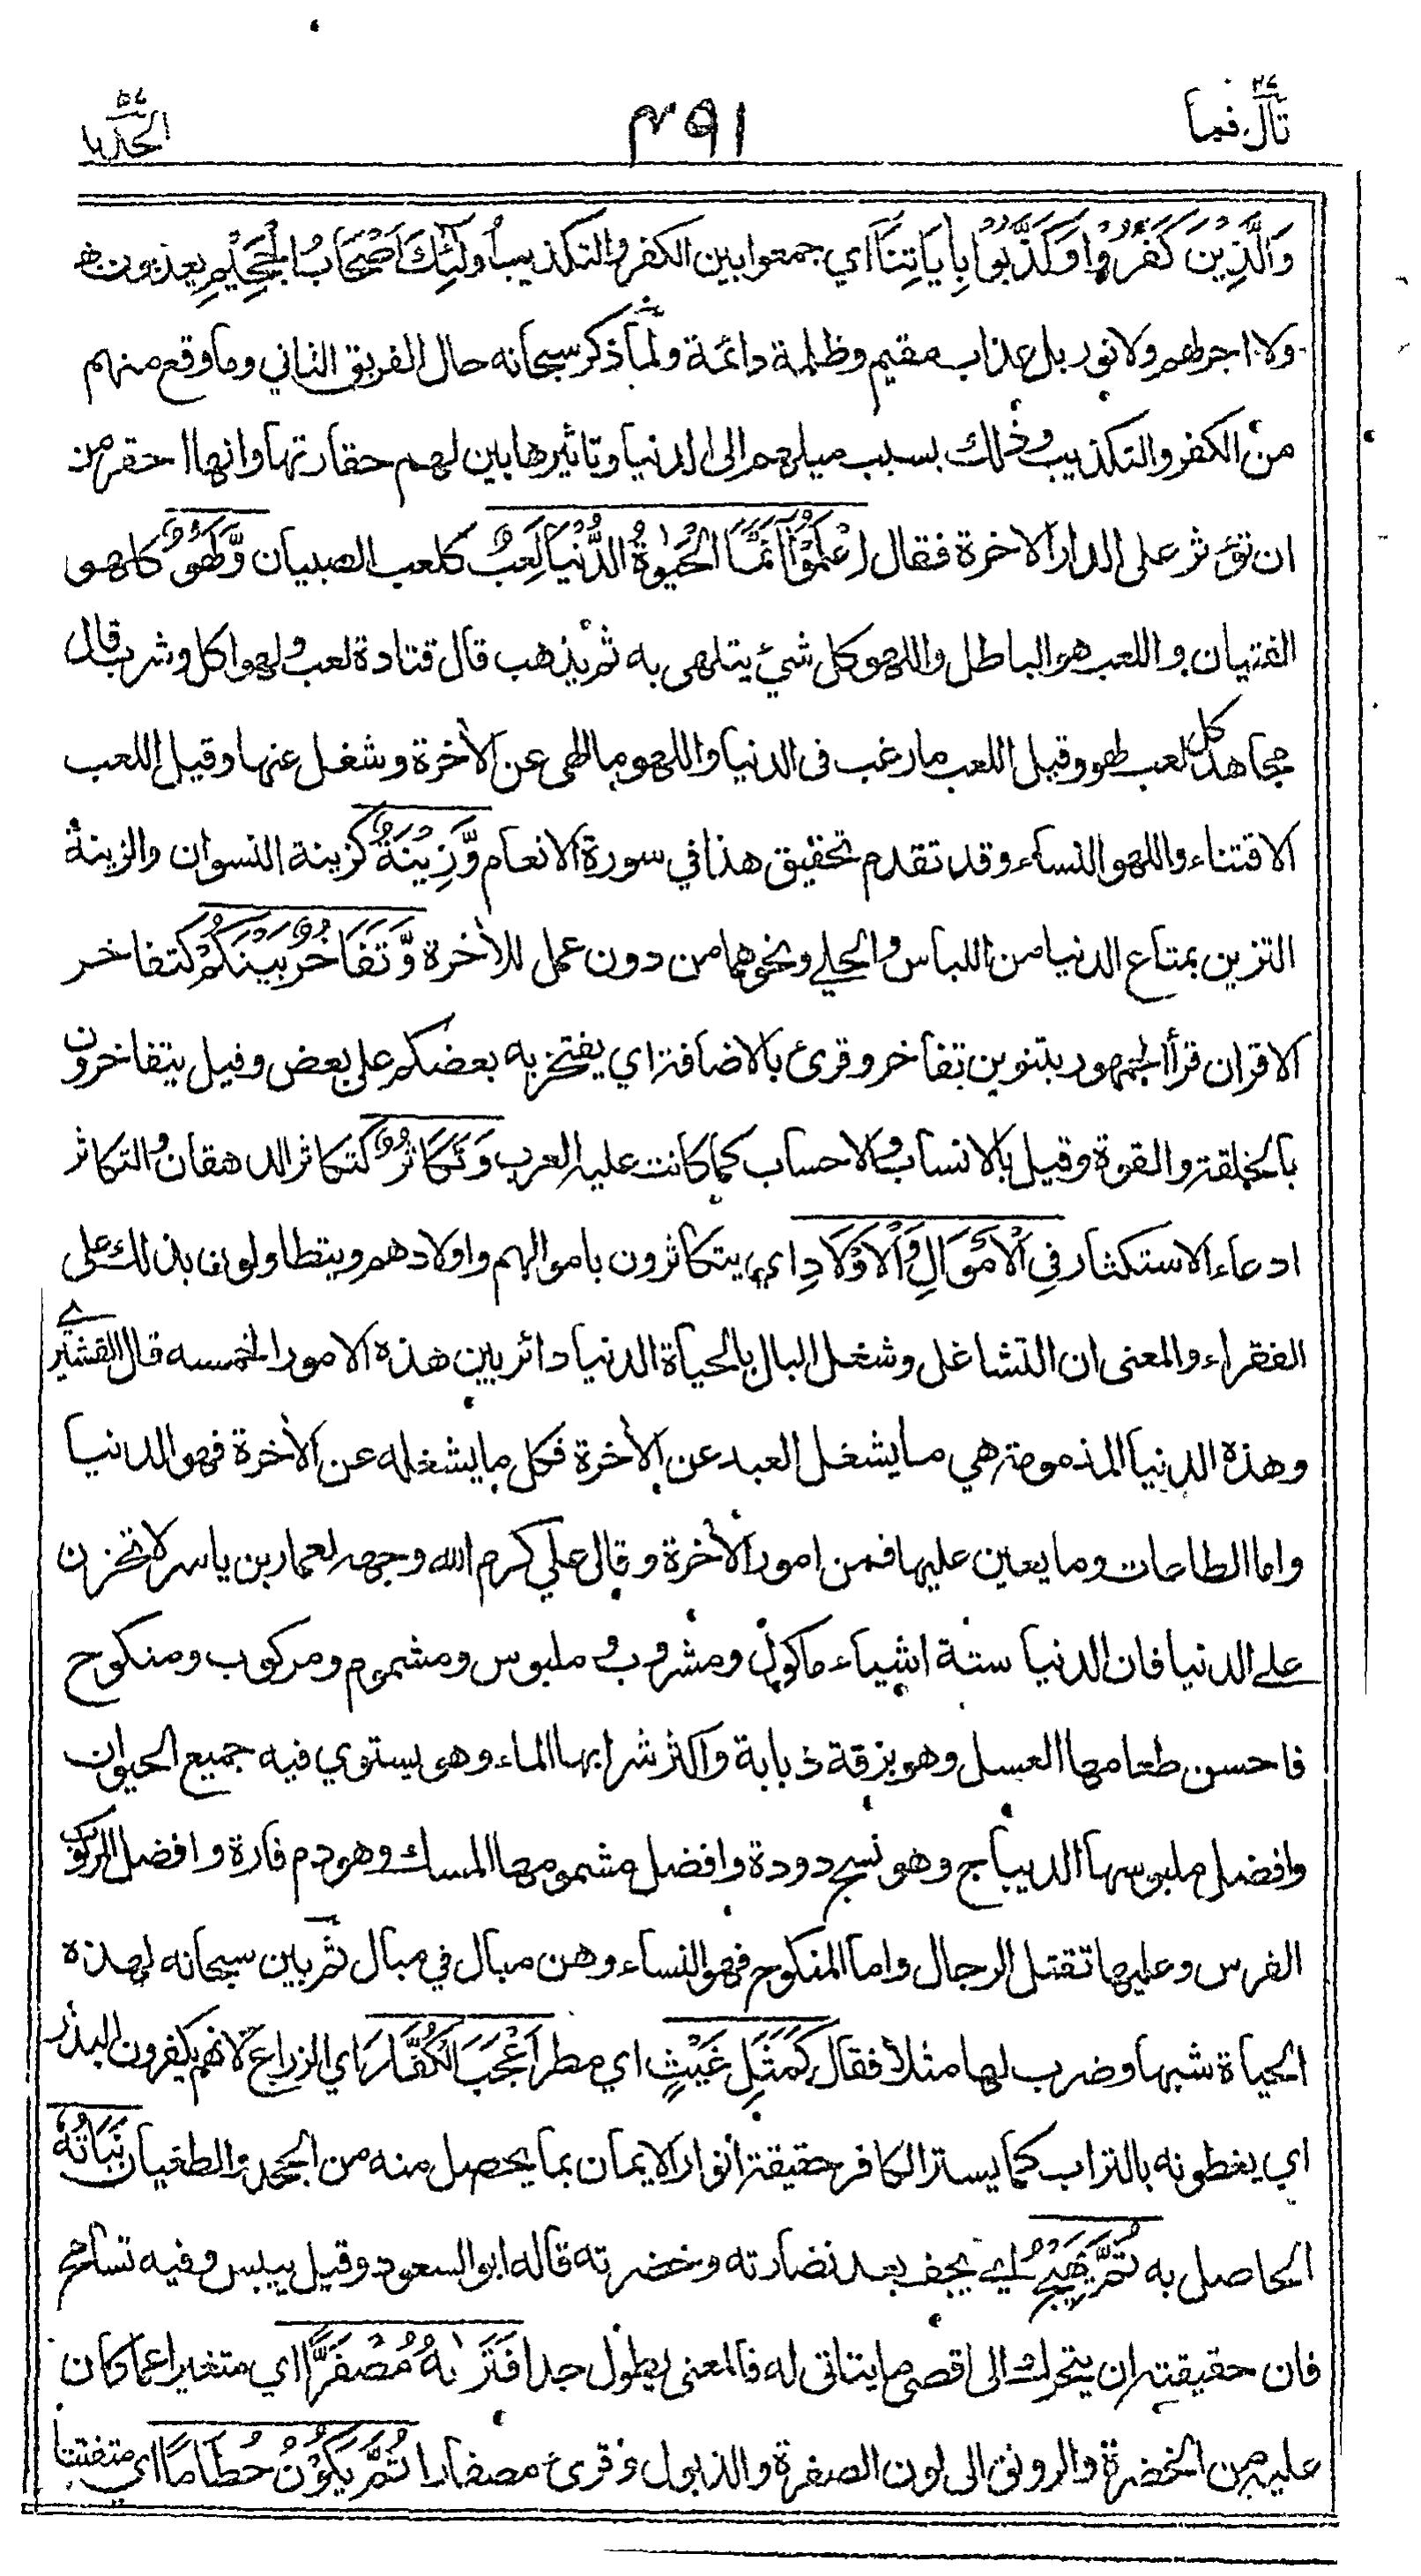 قال فما ٢٧
٤٩١
الحديد ٥٧
وَالَّذِيْنَ كَفَرُوْا وَكَذَّبُوْا بِأٰيَاتِنَا اي جمعوا بين الكفر والتكذيب أُولٰئِكَ اَصْحَابُ الْجَحِيْمِ يعذبون
ولا اجر لهم ولا نور بل عذاب مقيم وظلمة دائمة ولما ذكر سبحانه حال الفريق الثاني وما وقع منهم
من الكفر والتكذيب وذلك بسبب ميلهم الى الدنيا وتاثيرها بين لهم حقارتها وانها احقر من
ان تؤثر على الدار الاخرة فقال اِعْلَمُوْا اَنَّمَا الْحَيٰوةُ الدُّنْيَا لَعِبٌ كلعب الصبيان وَّلَهْوٌ كلهو
الفتيان واللعب هو الباطل واللهو كل شيء يتلهى به ثم يذهب قال قتادة لعب ولهو اكل وشرب قال
مجاهد كل لعب لهو وقيل اللعب ما رغب فى الدنيا واللهو ما الهى عن الأخرة وشغل عنها وقيل اللعب
الاقتناء واللهو النساء وقد تقدم تحقيق هذا في سورة الانعام وَّزِيْنَةٌ كزينة النسوان والزينة
التزين بمتاع الدنيا من اللباس والحلي ونحوهما من دون عمل للأخرة وَّتَفَاخُرٌ بَيْنَكُمْ كتفاخر
الاقران قرأ الجمهور بتنوين تفاخر وقرئ بالاضافة اي يفتخر به بعضكم على بعض وقيل يتفاخرون
بالخلقة والقوة وقيل بالانساب والاحساب كما كانت عليه العرب وَتَكَاثُرٌ كتكاثر الدهقان والتكاثر
ادعاء الاستكثار فِي الْاَمْوَالِ وَالْاَوْلَادِ اي يتكاثرون باموالهم واولادهم ويتطاولون بذلك على
الفقراء والمعنى ان التشاغل وشغل البال بالحياة الدنيا دائر بين هذه الامور الخمسه قال القشيري
وهذه الدنيا المذمومة هي ما يشغل العبد عن الأخرة فكل ما يشغله عن الأخرة فهو الدنيا
واما الطاعات وما يعين عليها فمن امور الأخرة وقال علي كرم الله وجهه لعمار بن ياسر لا تحزن
على الدنيا فان الدنيا ستة اشياء ماكول ومشروب وملبوس ومشموم ومركوب ومنكوح
فاحسن طعامها العسل وهو بزقة ذبابة واكثر شرابها الماء وهو يستوي فيه جميع الحيوان
وافضل ملبوسها الديباج وهو نسج دودة وافضل مشمومها المسك وهو دم فارة وافضل المركوب
الفرس وعليها تقتل الرجال واما المنكوح فهو النساء وهن مبال في مبال ثم بين سبحانه لهذه
الحياة شبها وضرب لها مثلا فقال كَمَثَلِ غَيْثٍ اي مطر اَعْجَبَ الْكُفَّارَ اي الزراع لانهم يكفرون البذر
اي يغطونه بالتراب كما يستر الكافر حقيقة أنوار الايمان بما يحصل منه من الجحد والطغيان نَبَاتُهٗ
الحاصل به ثُمَّ يَهِيْجُ اي يجف بعد نضارته وخضرته قاله ابو السعود وقيل ييبس وفيه تسامح
فان حقيقته ان يتحرك الى اقصى ما يتاتى له فالمعنى يطول جدا فَتَرٰىهُ مُصْفَرًّا اي متغيرا عما كان
عليه من الخضرة والرونق الى لون الصفرة والذبول وقرئ مصفارا ثُمَّ يَكُوْنُ حُطَامًا اي متفتتا